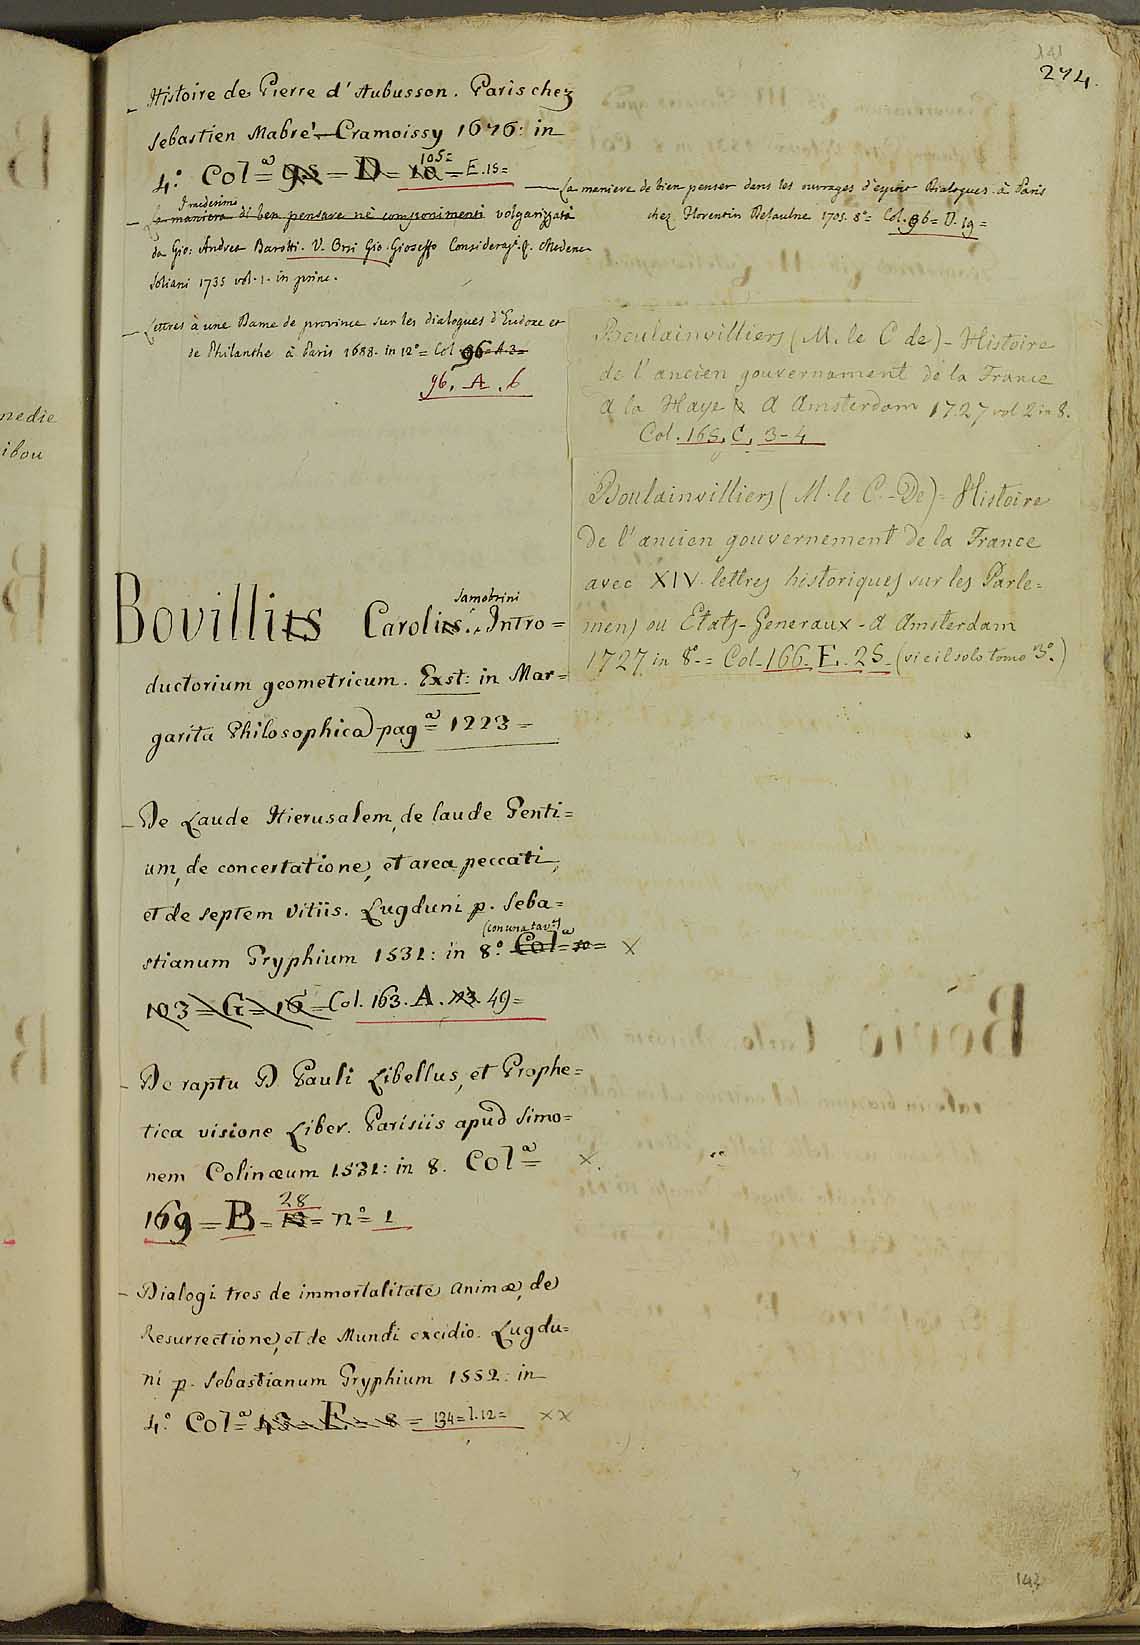 141
274.
Histoire de Pierre d'Aubusson. Paris chez
Sebastien Mabre'-Cramoissy 1676: in
4.º Colª= 98 = D = 10 = 105= E. 15=
Il medesimo
La maniera di ben pensare nè componimenti volgarizzata
da Gio: Andrea Barotti. V. Orsi Gio. Gioseffo Consideraz.i &. Modena
Soliani 1735 vol. 1. in princ.
Lettres à une Dame de province sur les dialogues d'Eudoxe et
de Philanthe à Paris 1688. in 12º= Col. 96 A. 3=
96. A. 6
La maniere de bien penser dans les ouvrages d'esprit Dialogues. à Paris
chez Florentin Delaulne 1705. 8º= Col. 96= D. 19=
Boulainvilliers (M. le C de)- Histoire
de l'ancien gouvernament de la France
a la Haye & a Amsterdam 1727 vol 2 in 8.
Col. 165. C. 3-4
Boulainvilliers (M. le C.-De)= Histoire
de l'ancien gouvernement de la France
avec XIV. lettres historiques sur les Parle=
mens ou Etats-Generaux - a Amsterdam
1727 in 8º.= Col. 166. E. 25. (vi è il solo tomo 3º.)
Samobrini
Bovillus Carolus. Intro=
ductorium geometricum. Exst: in Mar=
garita Philosophica pagª= 1223=
De Laude Hierusalem, de laude Genti=
um, de concertatione, et area peccati,
et de septem vitiis. Lugduni p. Seba=
(con una tav.ª)
stianum Gryphium 1531: in 8º. Colª= X
103 = G = 16 = Col. 163. A. 23. 49=
De raptu D. Pauli Libellus, et Prophe=
tica visione Liber. Parisiis apud Simo=
nem Colinæum 1531: in 8. Colª= X.
28
169 = B = 12 = nº= 1
Dialogi tres de immortalitate Animæ, de
Resurrectione, et de Mundi excidio. Lugdu=
ni p. Sebastianum Gryphium 1552: in
4º. Colª= 43 = F = 8 = 134=I.12= XX
143